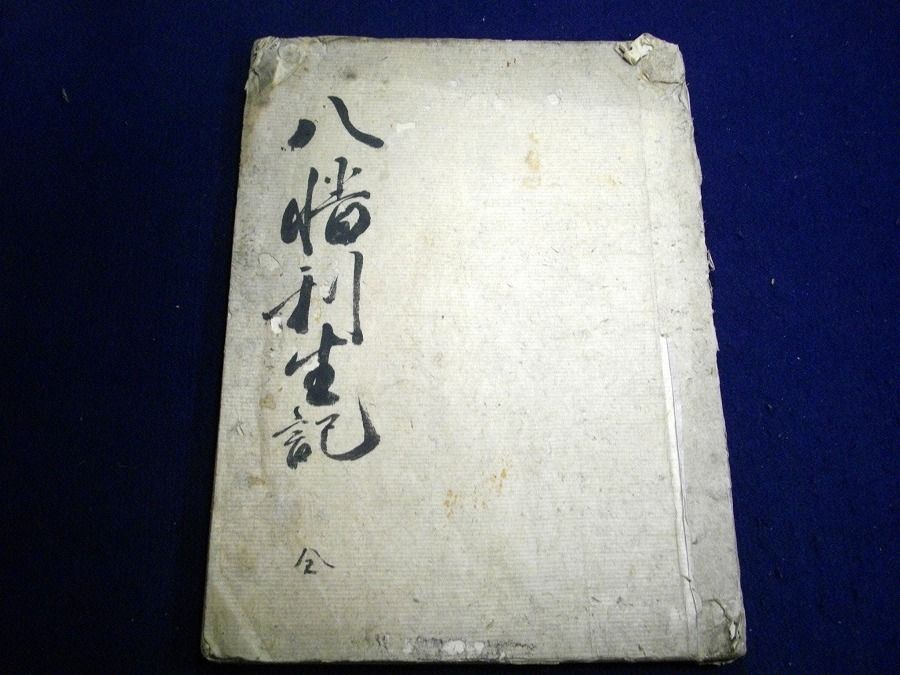 八幡利生記
全